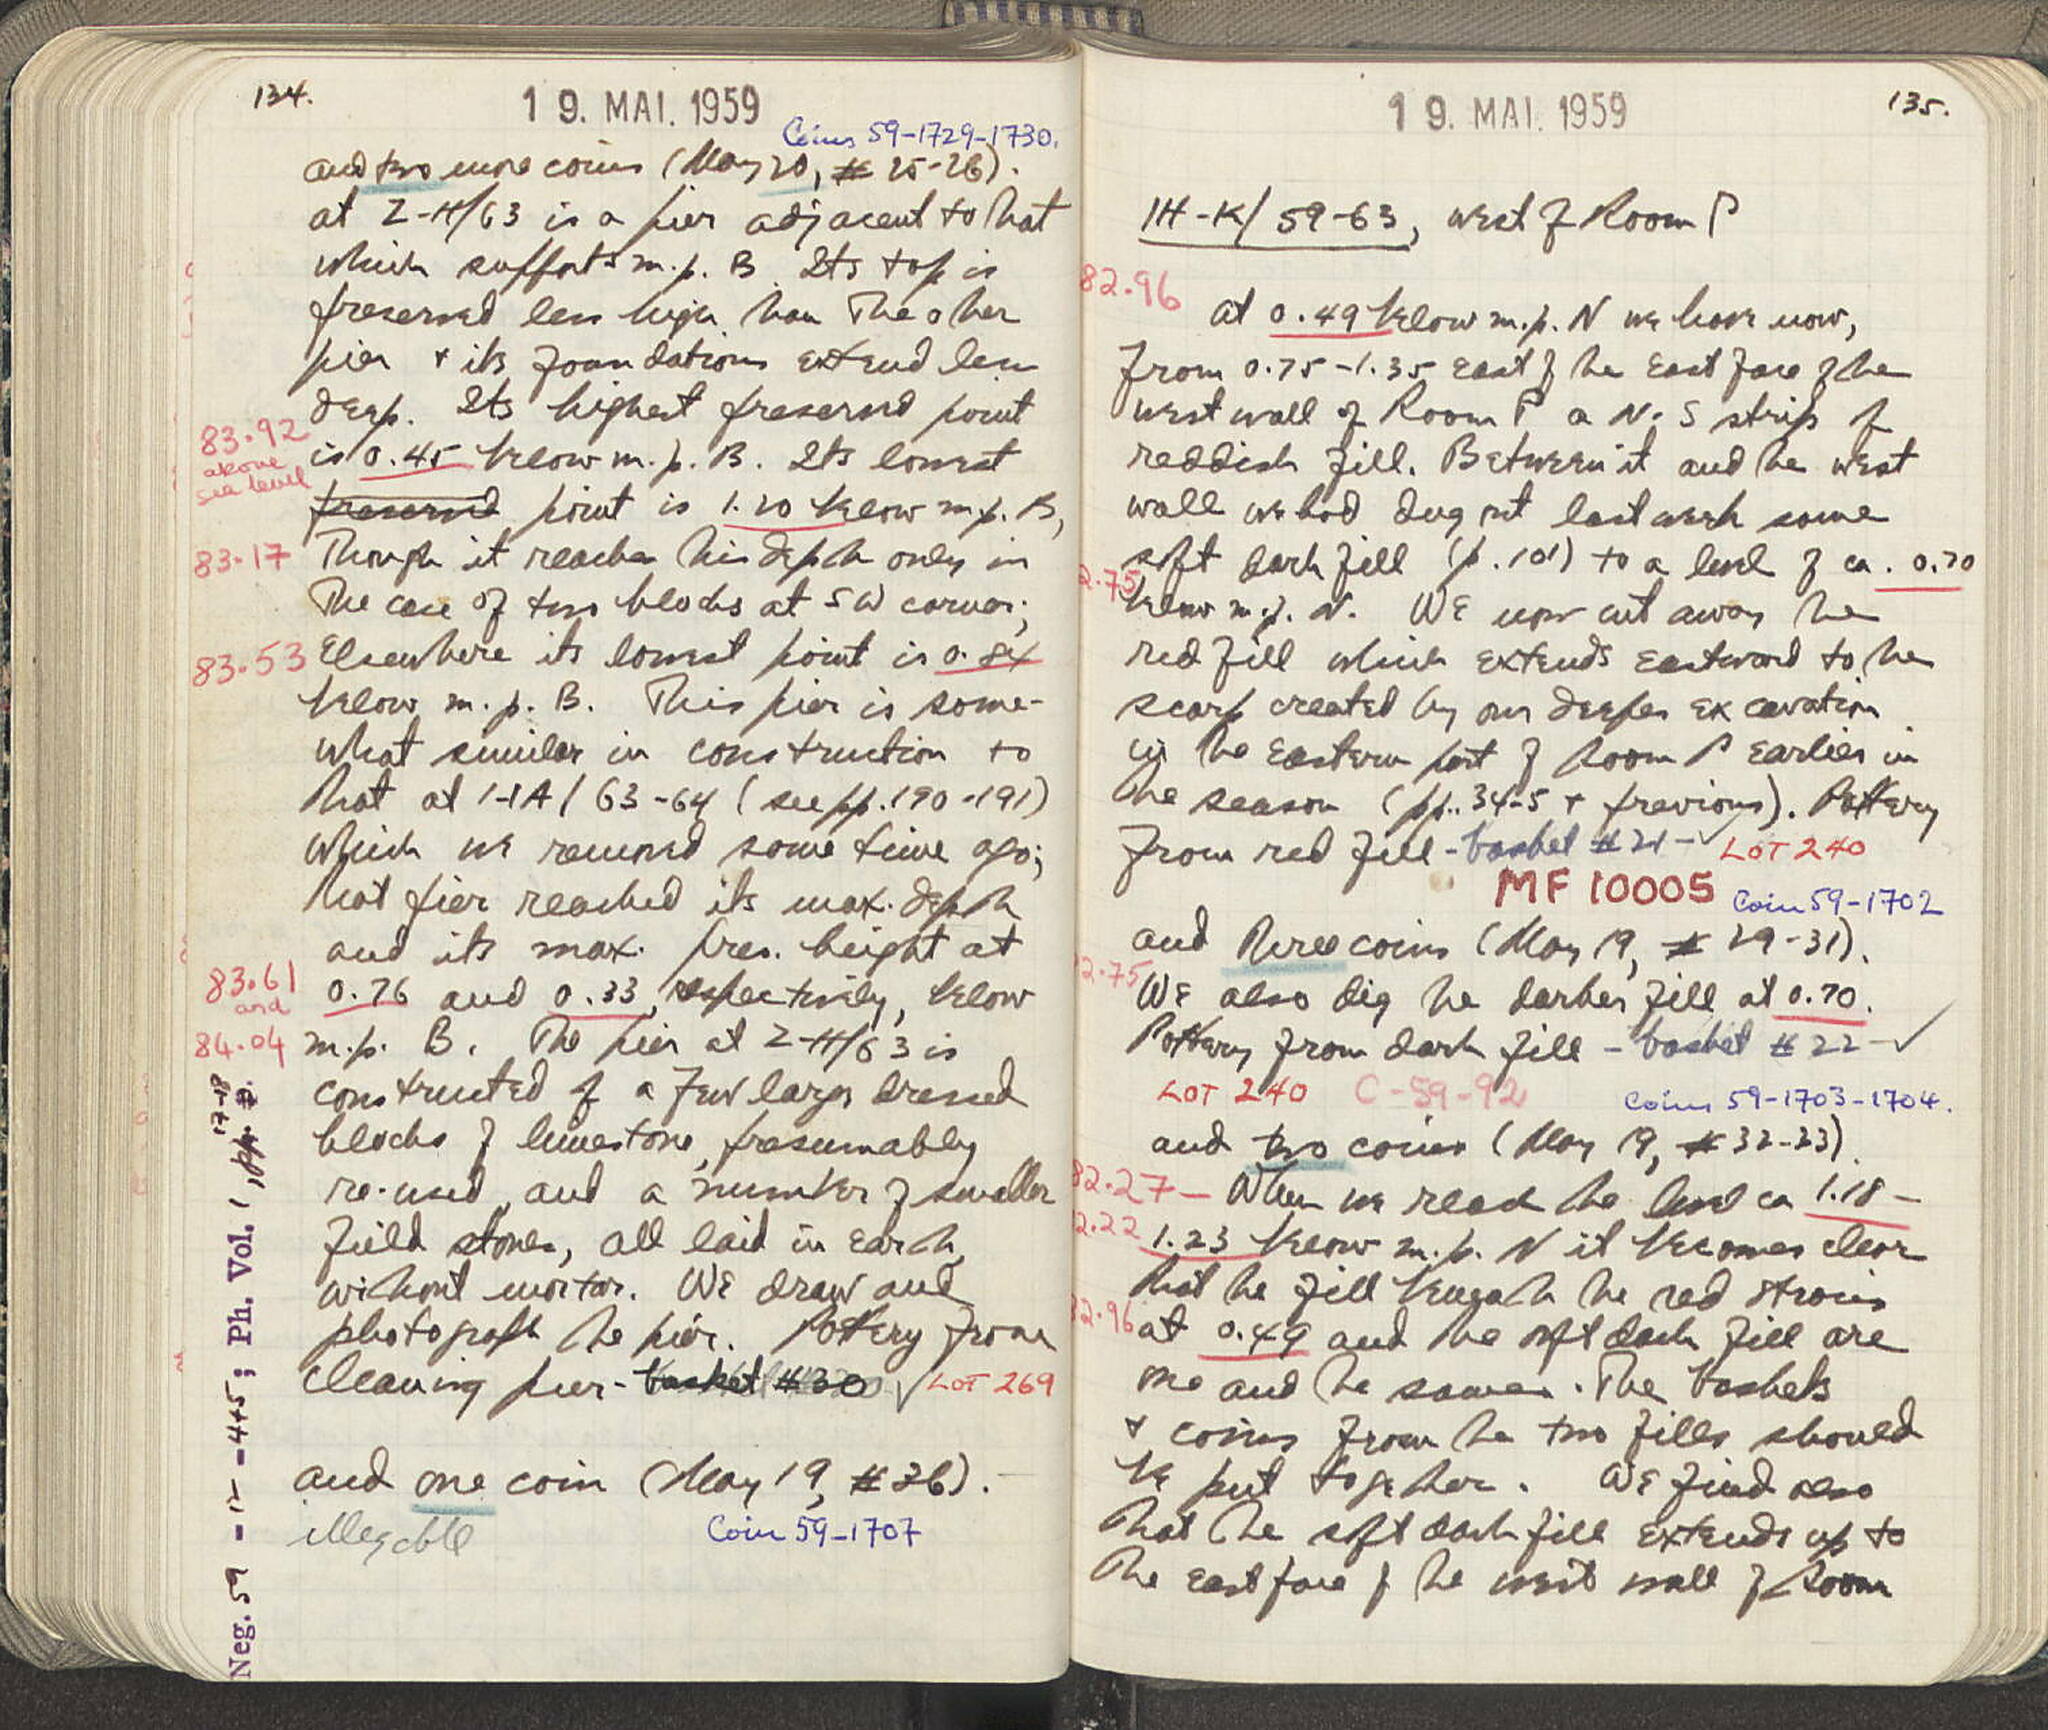 134.
19. MAI. 1959
Coins 59-1729-1730.
and two more coins (May 20, # 25-26).
at Z-H/63 is a pier adjacent to that
which supports m.p. B. Its top is
preserved less high than the other
pier + its foundations extend less
deep. Its highest preserved point
83.92
above
sea level
is 0.45 below m.p. B. Its lowest
preserved point is 1.20 below m.p. B,
83.17
Though it reaches this depth only in
the case of two blocks at SW corner;
83.53
Elsewhere its lowest point is 0.84
below m.p. B. This pier is some-
what similar in construction to
that at H-IA/63-64 (see pp. 190-191)
which we removed some time ago;
that pier reached its max. depth
and its max. pres. height at
83.61
and
84.04
0.76 and 0.33, respectively, below
m.p. B. The pier at Z-H/63 is
constructed of a few large dressed
blocks of limestone, presumably
re-used, and a number of smaller
field stones, all laid in earth,
without mortar. We draw and
photograph the pier. Pottery from
cleaning pier - basket #30 ✓ LOT 269
and one coin (May 19, #36).
illegible
Coin 59-1707
Neg. 59-12-4+5; Ph. Vol. 1, pp. 17-18
135.
19. MAI. 1959
IH-K/59-63, west of Room P
82.96
at 0.49 below m.p. N we have now,
from 0.75-1.35 east of the east face of the
west wall of Room P a N-S strip of
reddish fill. Between it and the west
wall we had dug out last week some
soft dark fill (p. 101) to a level of ca. 0.70
2.75
below m.p. N. We now cut away the
red fill which extends eastward to the
scarp created by our deeper excavation
in the eastern part of Room P earlier in
the season (pp. 34-5 + previous). Pottery
from red fill - basket #21 - ✓ LOT 240
MF 10005 Coin 59-1702
and three coins (May 19, # 29-31).
2.75
We also dig the darker fill at 0.70.
Pottery from dark fill - basket #22 - ✓
LOT 240 C-59-92 Coins 59-1703-1704.
and two coins (May 19, #32-33).
82.27 - When we reach the level ca 1.18-
2.22
1.23 below m.p. N it becomes clear
that the fill beneath the red strosis
82.96
at 0.49 and the soft dark fill are
one and the same. The baskets
+ coins from the two fills should
be put together. We find also
that the soft dark fill extends up to
the east face of the west wall of Room